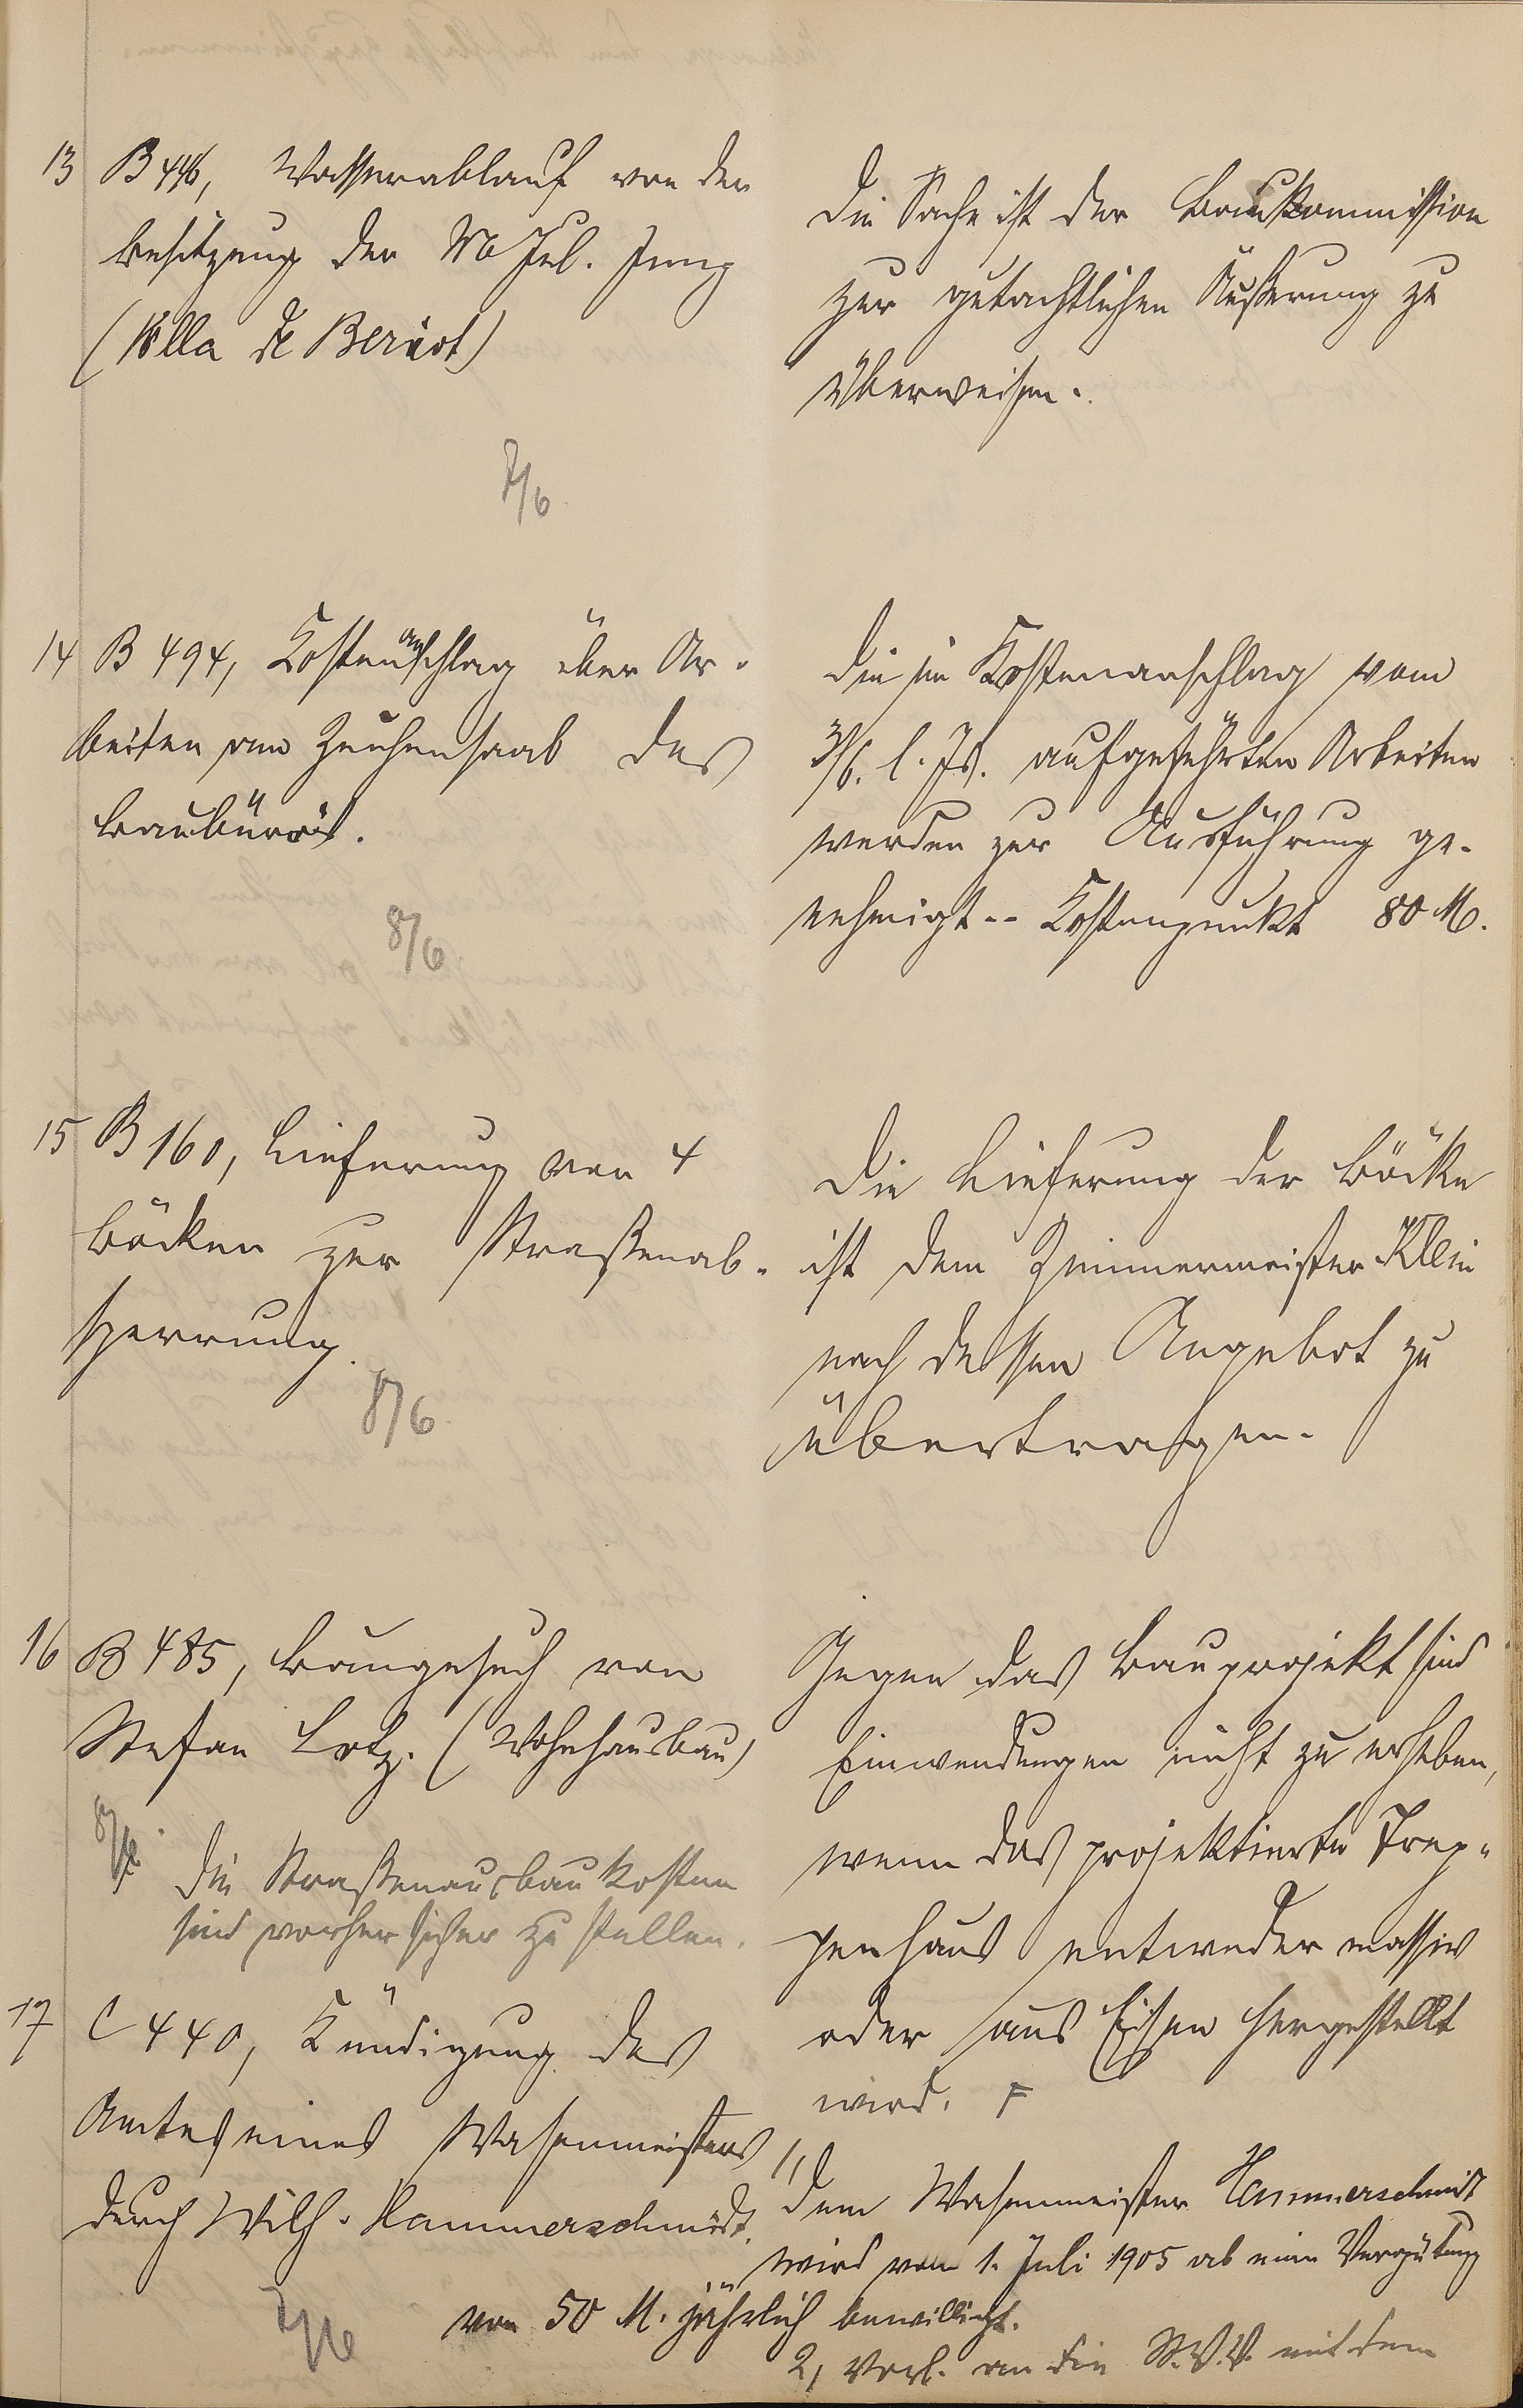 13 B 446, Wasserablauf von der
Besitzung der M Jul. Jung
(Villa de Beriot)
7/6
Die Sache ist der Baukommission
zur gutachtlichen Äußerung zu
überweisen.
14 B 494, Kostenanschlag über Ar-
beiten am Zeichensaal des
Baubüros.
8/6
Die im Kostenanschlag vom
3/6. l. Js. aufgeführten Arbeiten
werden zur Ausführung ge-
nehmigt -- Kostenpunkt 80 M.
15 B 160, Lieferung von 4
Böcken zur Straßenab-
sperrung.
8/6
Die Lieferung der Böcke
ist dem Zimmermeister Klein
nach dessen Angebot zu
übertragen.
16 B 485, Baugesuch von
Stefan Lotz. (Wohnhausbau)
8/6.
Die Straßenausbaukosten
sind vorher sicher zu stellen.
Gegen das Bauprojekt sind
Einwendungen nicht zu erheben,
wenn das projektierte Trep-
penhaus entweder massiv
oder aus Eisen hergestellt
wird. F
17 C 440, Kündigung des
Amtes eines Wasenmeisters
durch Wilh. Hammerschmidt.
7/6
1, Dem Wasenmeister Hammerschmidt
wird vom 1. Juli 1905 ab eine Vergütung
von 50 M. jährlich bewilligt.
2, Vorl. an die St. V. V. mit dem